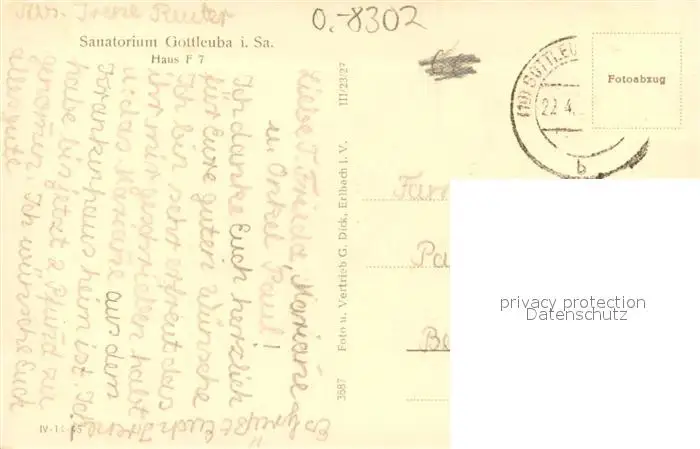 Abs. Irene Reuter
O.-8302
Sanatorium Gottleuba i. Sa.
Haus F 7
Liebe T. Frieda, Mariane
u. Onkel Paul!
Ich danke Euch herzlich
für Eure guten Wünsche
Ich bin sehr erfreut das
ihr mir geschrieben habt
u. das Mariane aus dem
Krankenhaus heim ist. Ich
habe bis jetzt 2 Pfund zu
genomen. Ich wünsche Euch
alles gute
Es grüßt Euch Irene
III/23/27
Foto u. Vertrieb G. Dick, Erlbach i. V.
3887
IV-14-45
(10) GOTTLEU
22.4.
b
Fotoabzug
Fam
Pa
Be
privacy protection
Datenschutz